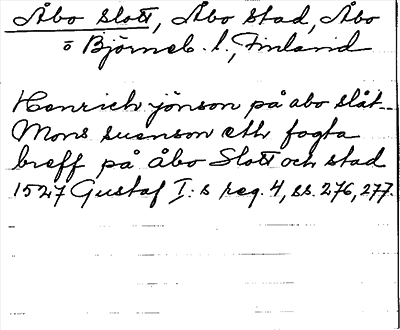 Åbo slott, Åbo stad, Åbo
o Björneb. l., Finland
Henrich jönson på abo slåt
Mons suenson eth fogta
breff på Åbo Slott och stad
1527 Gustaf I:s reg. 4, ss. 276, 277.